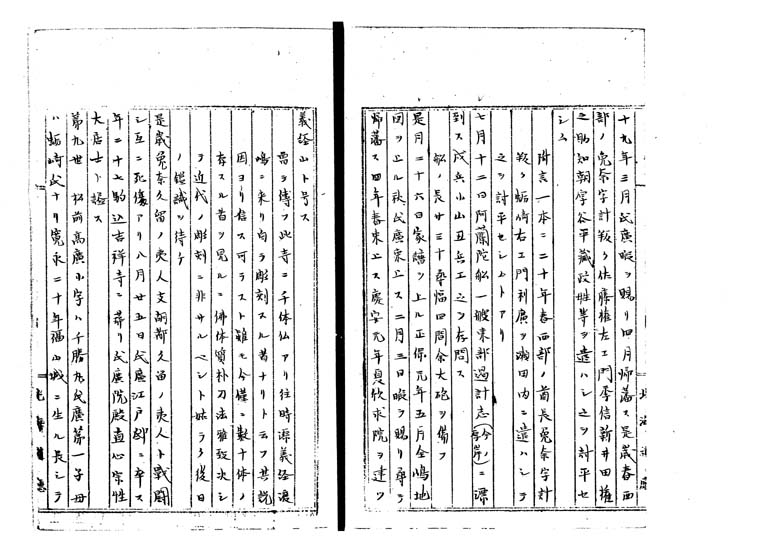 十九年三月氏廣暇ヲ賜リ四月帰藩ス是歳春西
部ノ免奈宇計叛ク佐藤権左エ門季信新井田権
之助知朝字谷平蔵政胜等ヲ遣ハシ之ヲ討平セ
シム
附言一本ニ二十年春西部ノ酋長兔奈宇計
叛ク蛎崎右エ門利廣ヲ瀬田内ニ遣ハシテ
之ヲ討平セシムトアリ
七月十二日阿蘭陀舩一艘東部遏計志(今ノ厚岸)ニ漂
到ス戍兵小山五兵エ之ヲ存問ス
舩ノ長サ三十尋幅四間余大砲ヲ備フ
是月二十六日家譜ヲ上ル正保元年五月全嶋地
図ヲ上ル秋氏廣東上ス二月三日暇ヲ賜リ尋テ
帰藩ス四年春東上ス慶安元年夏欣求院ヲ建ツ
義経山ト号ス
曽テ傳フ此寺ニ千体仏アリ往時源義経渡
嶋ニ来リ自ラ彫刻スル者ナリト云フ其説
固ヨリ信ス可ラスト雖モ今僅ニ数十体ノ
存スル者ヲ見ルニ佛体質朴刀法雅致决シ
テ近代ノ彫刻ニ非サルヘシト姑ラク後日
ノ鑑識ヲ待ツ
是歳兔奈久留ノ夷人文胡都久留ノ夷人ト戰鬪
シ互ニ死傷アリ八月廿五日氏廣江戸邸ニ卒ス
年二十七駒込吉祥寺ニ葬リ氏廣院殿直心宗性
大居士ト謚ス
第九世 松前高廣小字ハ千勝丸氏廣第一子母
ハ蛎崎氏ナリ寛永二十年福山城ニ生ル長シテ